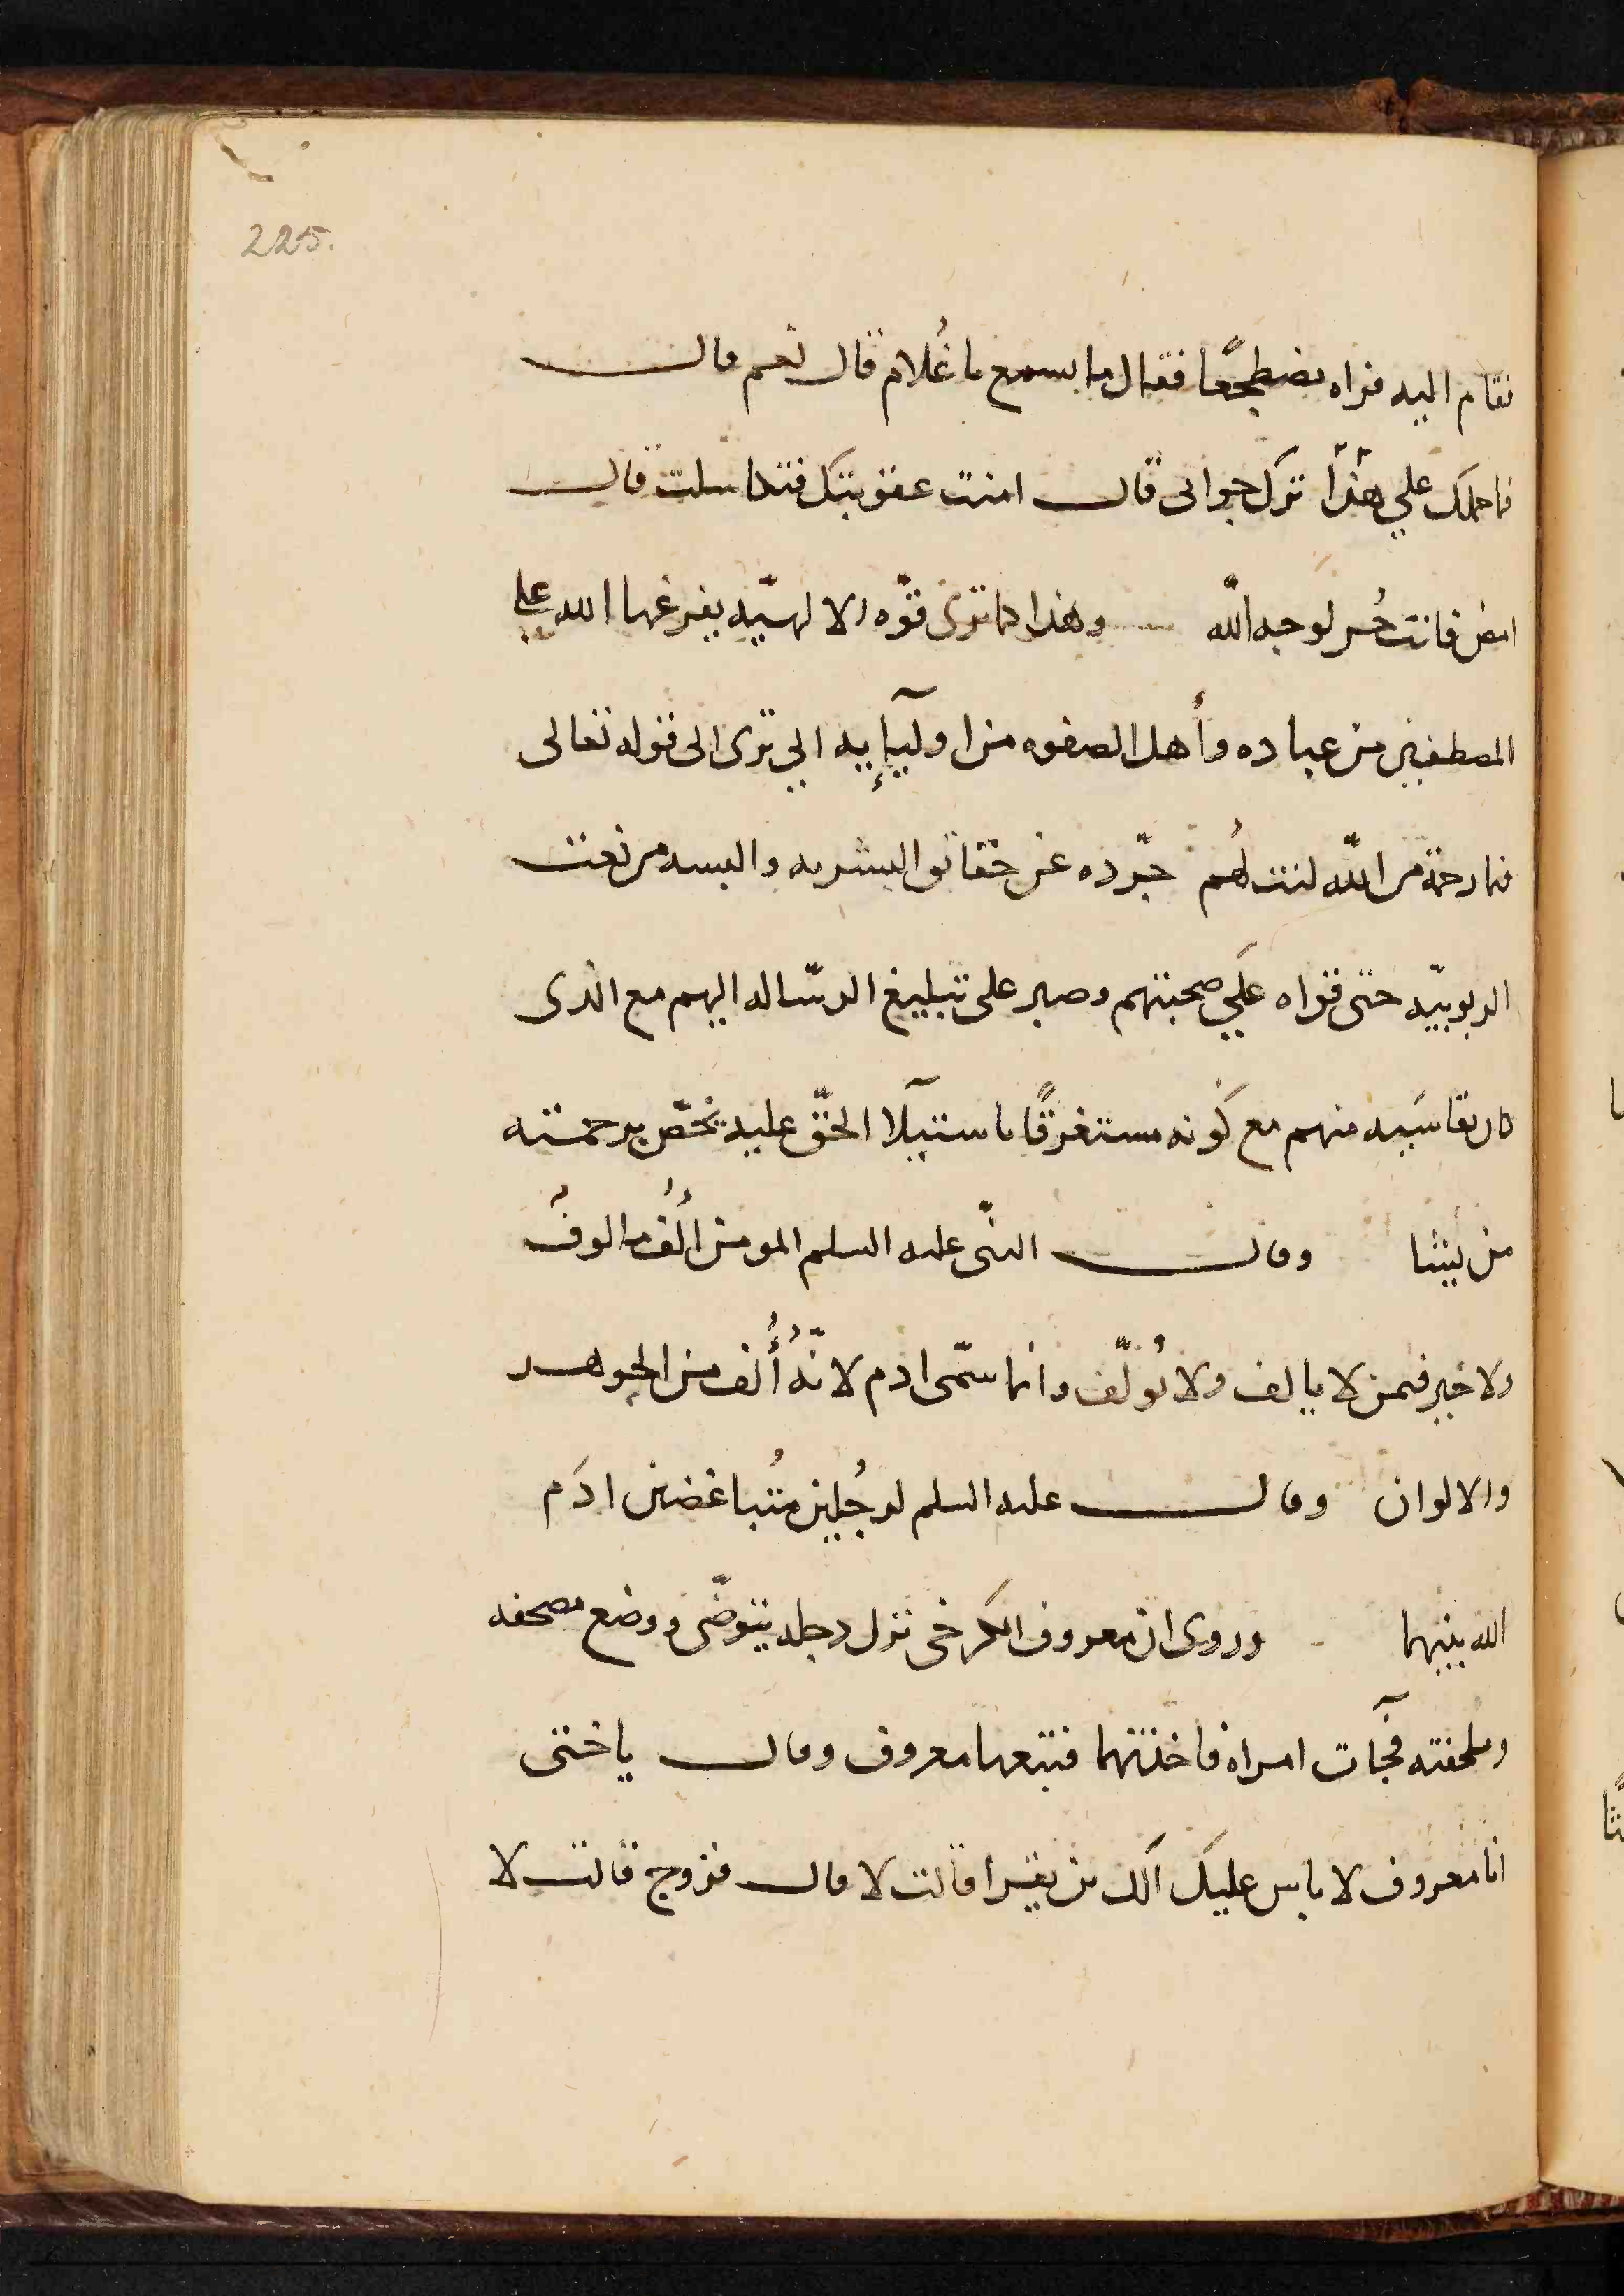 225.
فقام اليه فراه مضطجعًا فقال ما تسمع يا غُلام قال نعم قال
فما حملك علي هذا ترك جوابى قال امنت عقوبتك فتكاسلت قال
امض فانت حُر لوجه اللّه وهذا كما ترى قوّه الالهيّه يفرغها الله علي
المصطفين من عباده وأهل الصفوه من اوليآيه الي ترى الى قوله تعالى
فبما رحمة من اللّه لنت لهُم جرّده عن حقايق البشريه والبسه من نعت
الربوبيّه حتى قواه علَي صحبتهم وصبر على تبليغ الرسّاله اليهم مع الذى
كان يقاسَيه منهم مع كَونه مستغرقًا باستيلآ الحقّ عليه يخصّ برحمته
من يشا وقال النبّى عليه السلم المومن أُلفُ مالوفُ
ولا خير فيمن لا يالف ولا يُولّف وانما سمّى ادم لانّهُ أُلف من الجوهر
والالوان وقال عليه السلم لرجُلين مُتباغضين ادَم
الله بينهما وروى ان معروف الكرخى نزل دجله يتوضّى ووضع مصحفه
وملحفته فجآت امراه فاخذتهما فتبعها معروف وقال ياختى
انا معروف لا باس عليك الك من يقرا قالت لا قال فزوج قالت لا